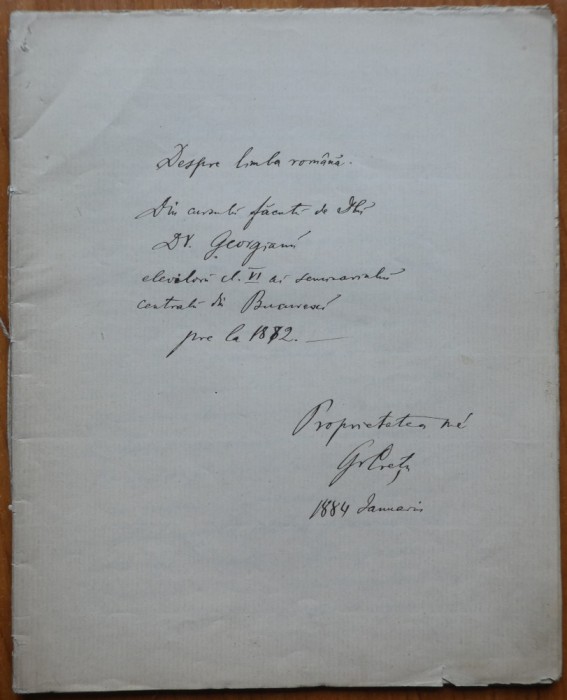 Despre limba română.
Din cursulŭ făcutŭ de Dlŭ
Dr. Georgianŭ
elevilorŭ cl. VI ai seminariului
centralŭ din Bucurescĭ
pre la 1872. —
Proprietatea mea
Gr Crețu
1884 Ianuarie